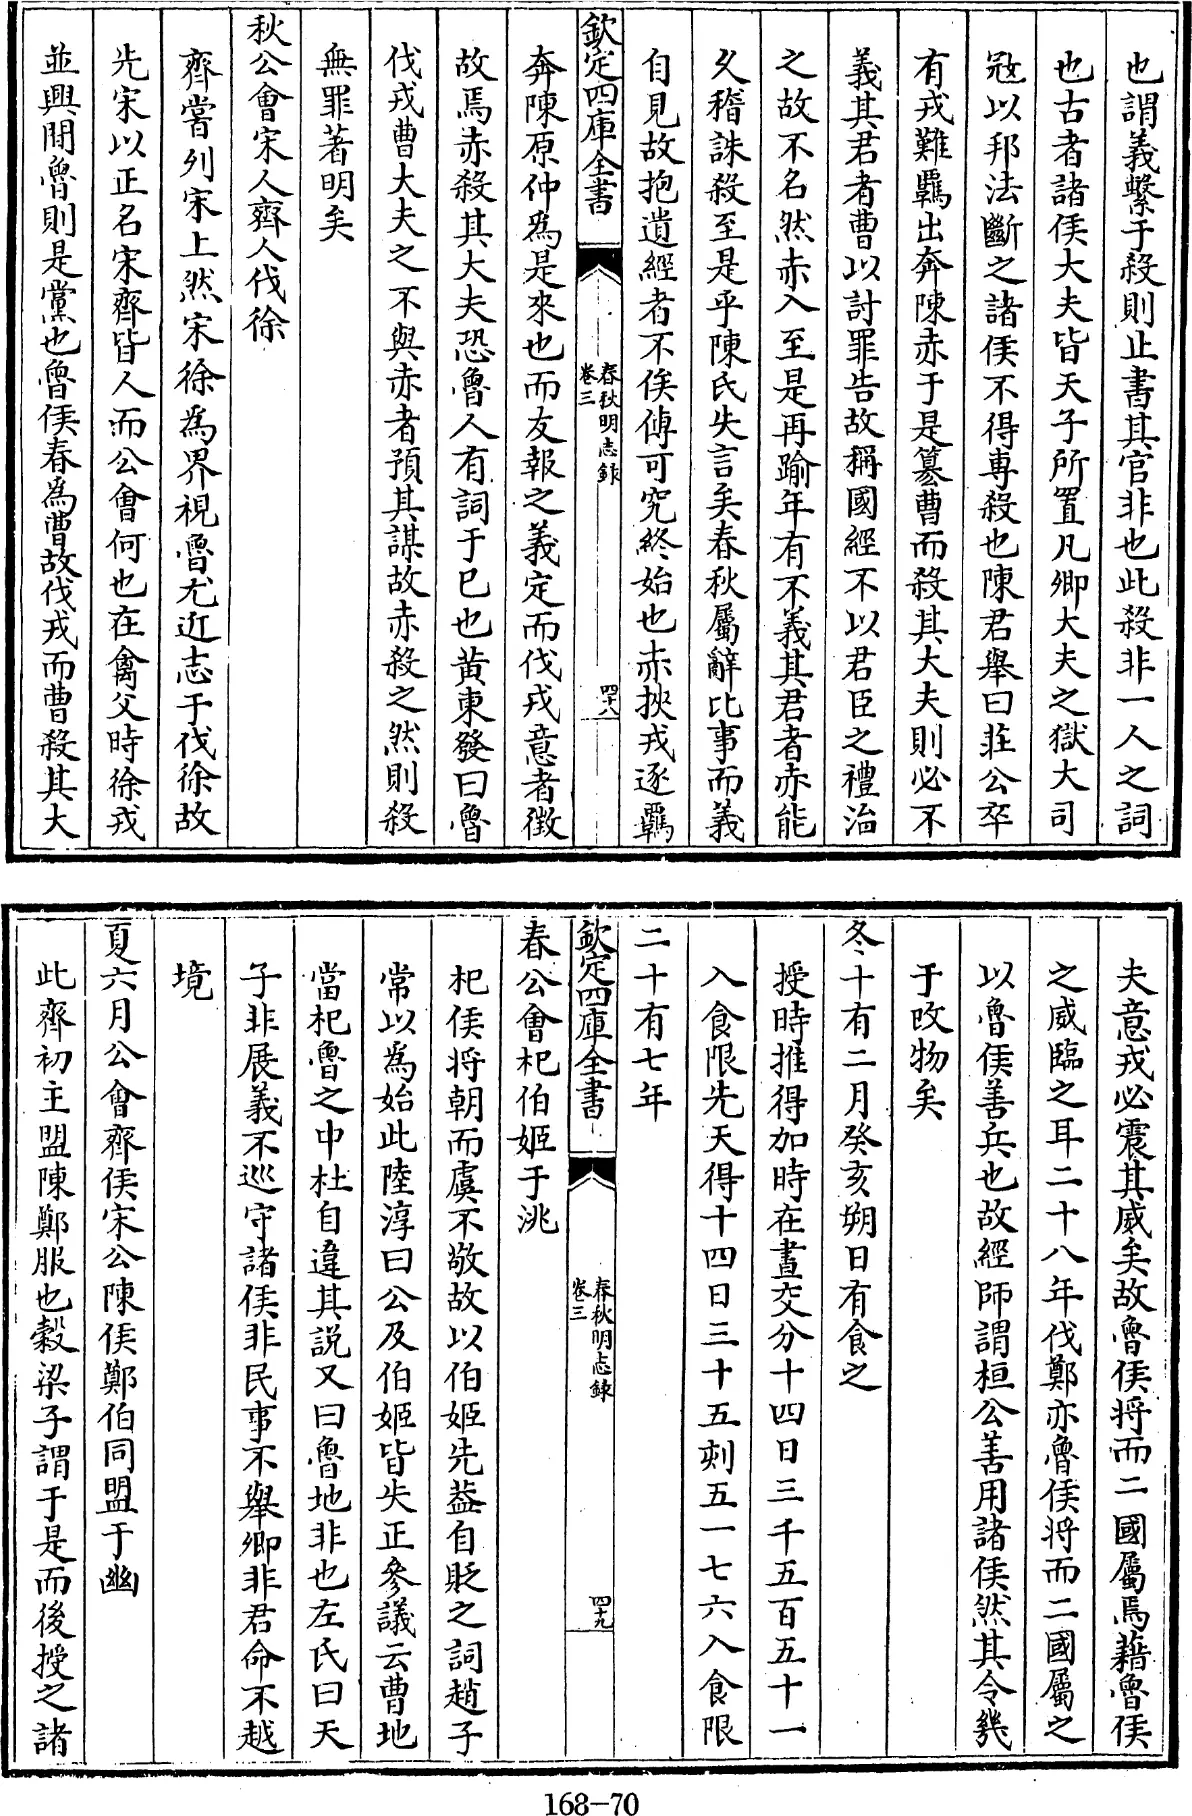 也謂義繫于殺則止書其官非也此殺非一人之詞
也古者諸侯大夫皆天子所置凡卿大夫之獄大司
冦以邦法斷之諸侯不得專殺也陳君舉曰莊公卒
有戎難羈出奔陳赤于是簒曹而殺其大夫則必不
義其君者曹以討罪告故稱國經不以君臣之禮治
之故不名然赤入至是再踰年有不義其君者赤能
久稽誅殺至是乎陳氏失言矣春秋屬辭比事而義
自見故抱遺經者不俟傳可究終始也赤挾戎逐羈
欽定四庫全書
春秋明志録
卷三
四十八
奔陳原仲為是來也而友報之義定而伐戎意者徴
故焉赤殺其大夫恐魯人有詞于已也黄東發曰魯
伐戎曹大夫之不與赤者預其謀故赤殺之然則殺
無罪著明矣
秋公會宋人齊人伐徐
齊嘗列宋上然宋徐為界視魯尤近志于伐徐故
先宋以正名宋齊皆人而公會何也在禽父時徐戎
並興閒魯則是黨也魯侯春為曹故伐戎而曹殺其大
夫意戎必震其威矣故魯侯将而二國屬焉藉魯侯
之威臨之耳二十八年伐鄭亦魯侯将而二國屬之
以魯侯善兵也故經師謂桓公善用諸侯然其令㡬
于改物矣
冬十有二月癸亥朔日有食之
授時推得加時在晝交分十四日三千五百五十一
入食限先天得十四日三十五刻五一七六入食限
二十有七年
欽定四庫全書
春秋明志録
卷三
四十九
春公會杞伯姬于洮
杞侯将朝而虞不敬故以伯姬先葢自貶之詞趙子
常以為始此陸淳曰公及伯姬皆失正參議云曹地
當杞魯之中杜自違其説又曰魯地非也左氏曰天
子非展義不巡守諸侯非民事不舉卿非君命不越
境
夏六月公會齊侯宋公陳侯鄭伯同盟于幽
此齊初主盟陳鄭服也穀梁子謂于是而後授之諸
168-70